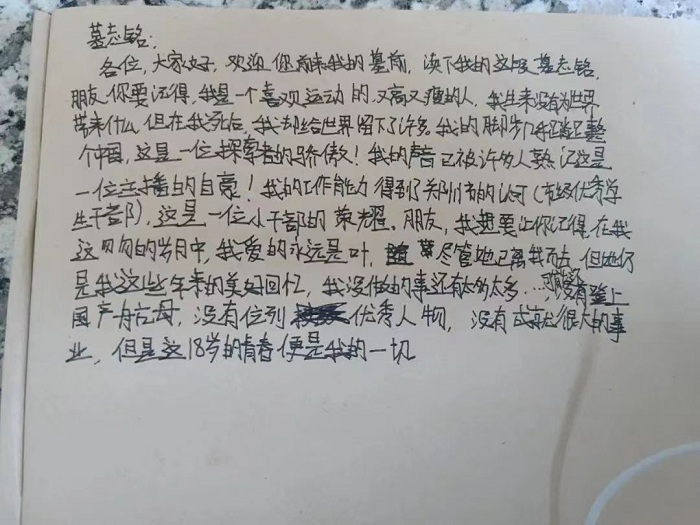 墓志铭:
各位,大家好,欢迎您前来我的墓前,读下我的这段墓志铭,
朋友你要记得,我是一个喜欢运动的,又高又瘦的人,我生来没有为世界
带来什么,但在我死后,我却给世界留下了许多,我的脚步几乎踏足整
个中国,这是一位探索者的骄傲!我的声音已被许多人熟记这是
一位主播的自豪!我的工作能力得到了郑州市的认可(市级优秀学
生干部),这是一位小干部的荣耀。朋友,我想要让你记得,在我
这 的岁月中,我爱的永远是叶, 尽管她已离我而去,但她仍
是我这些年来的美好回忆,我没做的事还有太多太多… 没有登上
国产航母,没有位列 优秀人物,没有成就很大的事
业,但是这18岁的青春便是我的一切